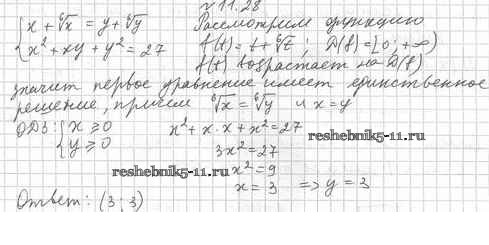 √11.28
{ x + ⁶√x = y + ⁶√y
x² + xy + y² = 27
Рассмотрим функцию
f(t) = t + ⁶√t ; D(f) = [0 ; +∞)
f(t) возрастает на D(f)
значит первое уравнение имеет единственное
решение, причем ⁶√x = ⁶√y и x = y
ОДЗ: { x ≥ 0
y ≥ 0
x² + x · x + x² = 27
reshebnik5-11.ru
3x² = 27
reshebnik5-11.ru
x² = 9
x = 3 => y = 3
Ответ: (3 ; 3)